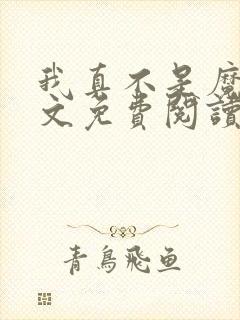 我真不是魔
文免费閱讀
青鳥飛魚